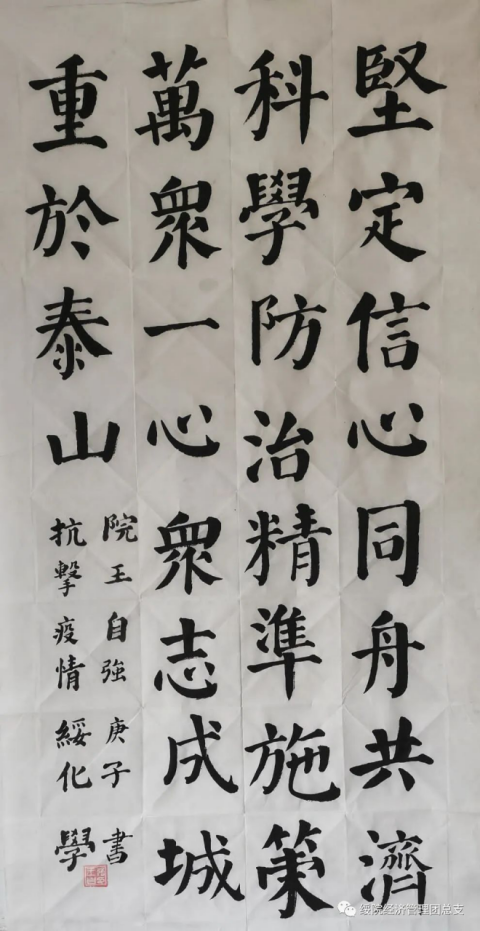 堅定信心同舟共濟
科學防治精準施策
萬衆一心衆志成城
重於泰山
抗擊疫情綏化學
院王自強庚子書
绥院经济管理团总支